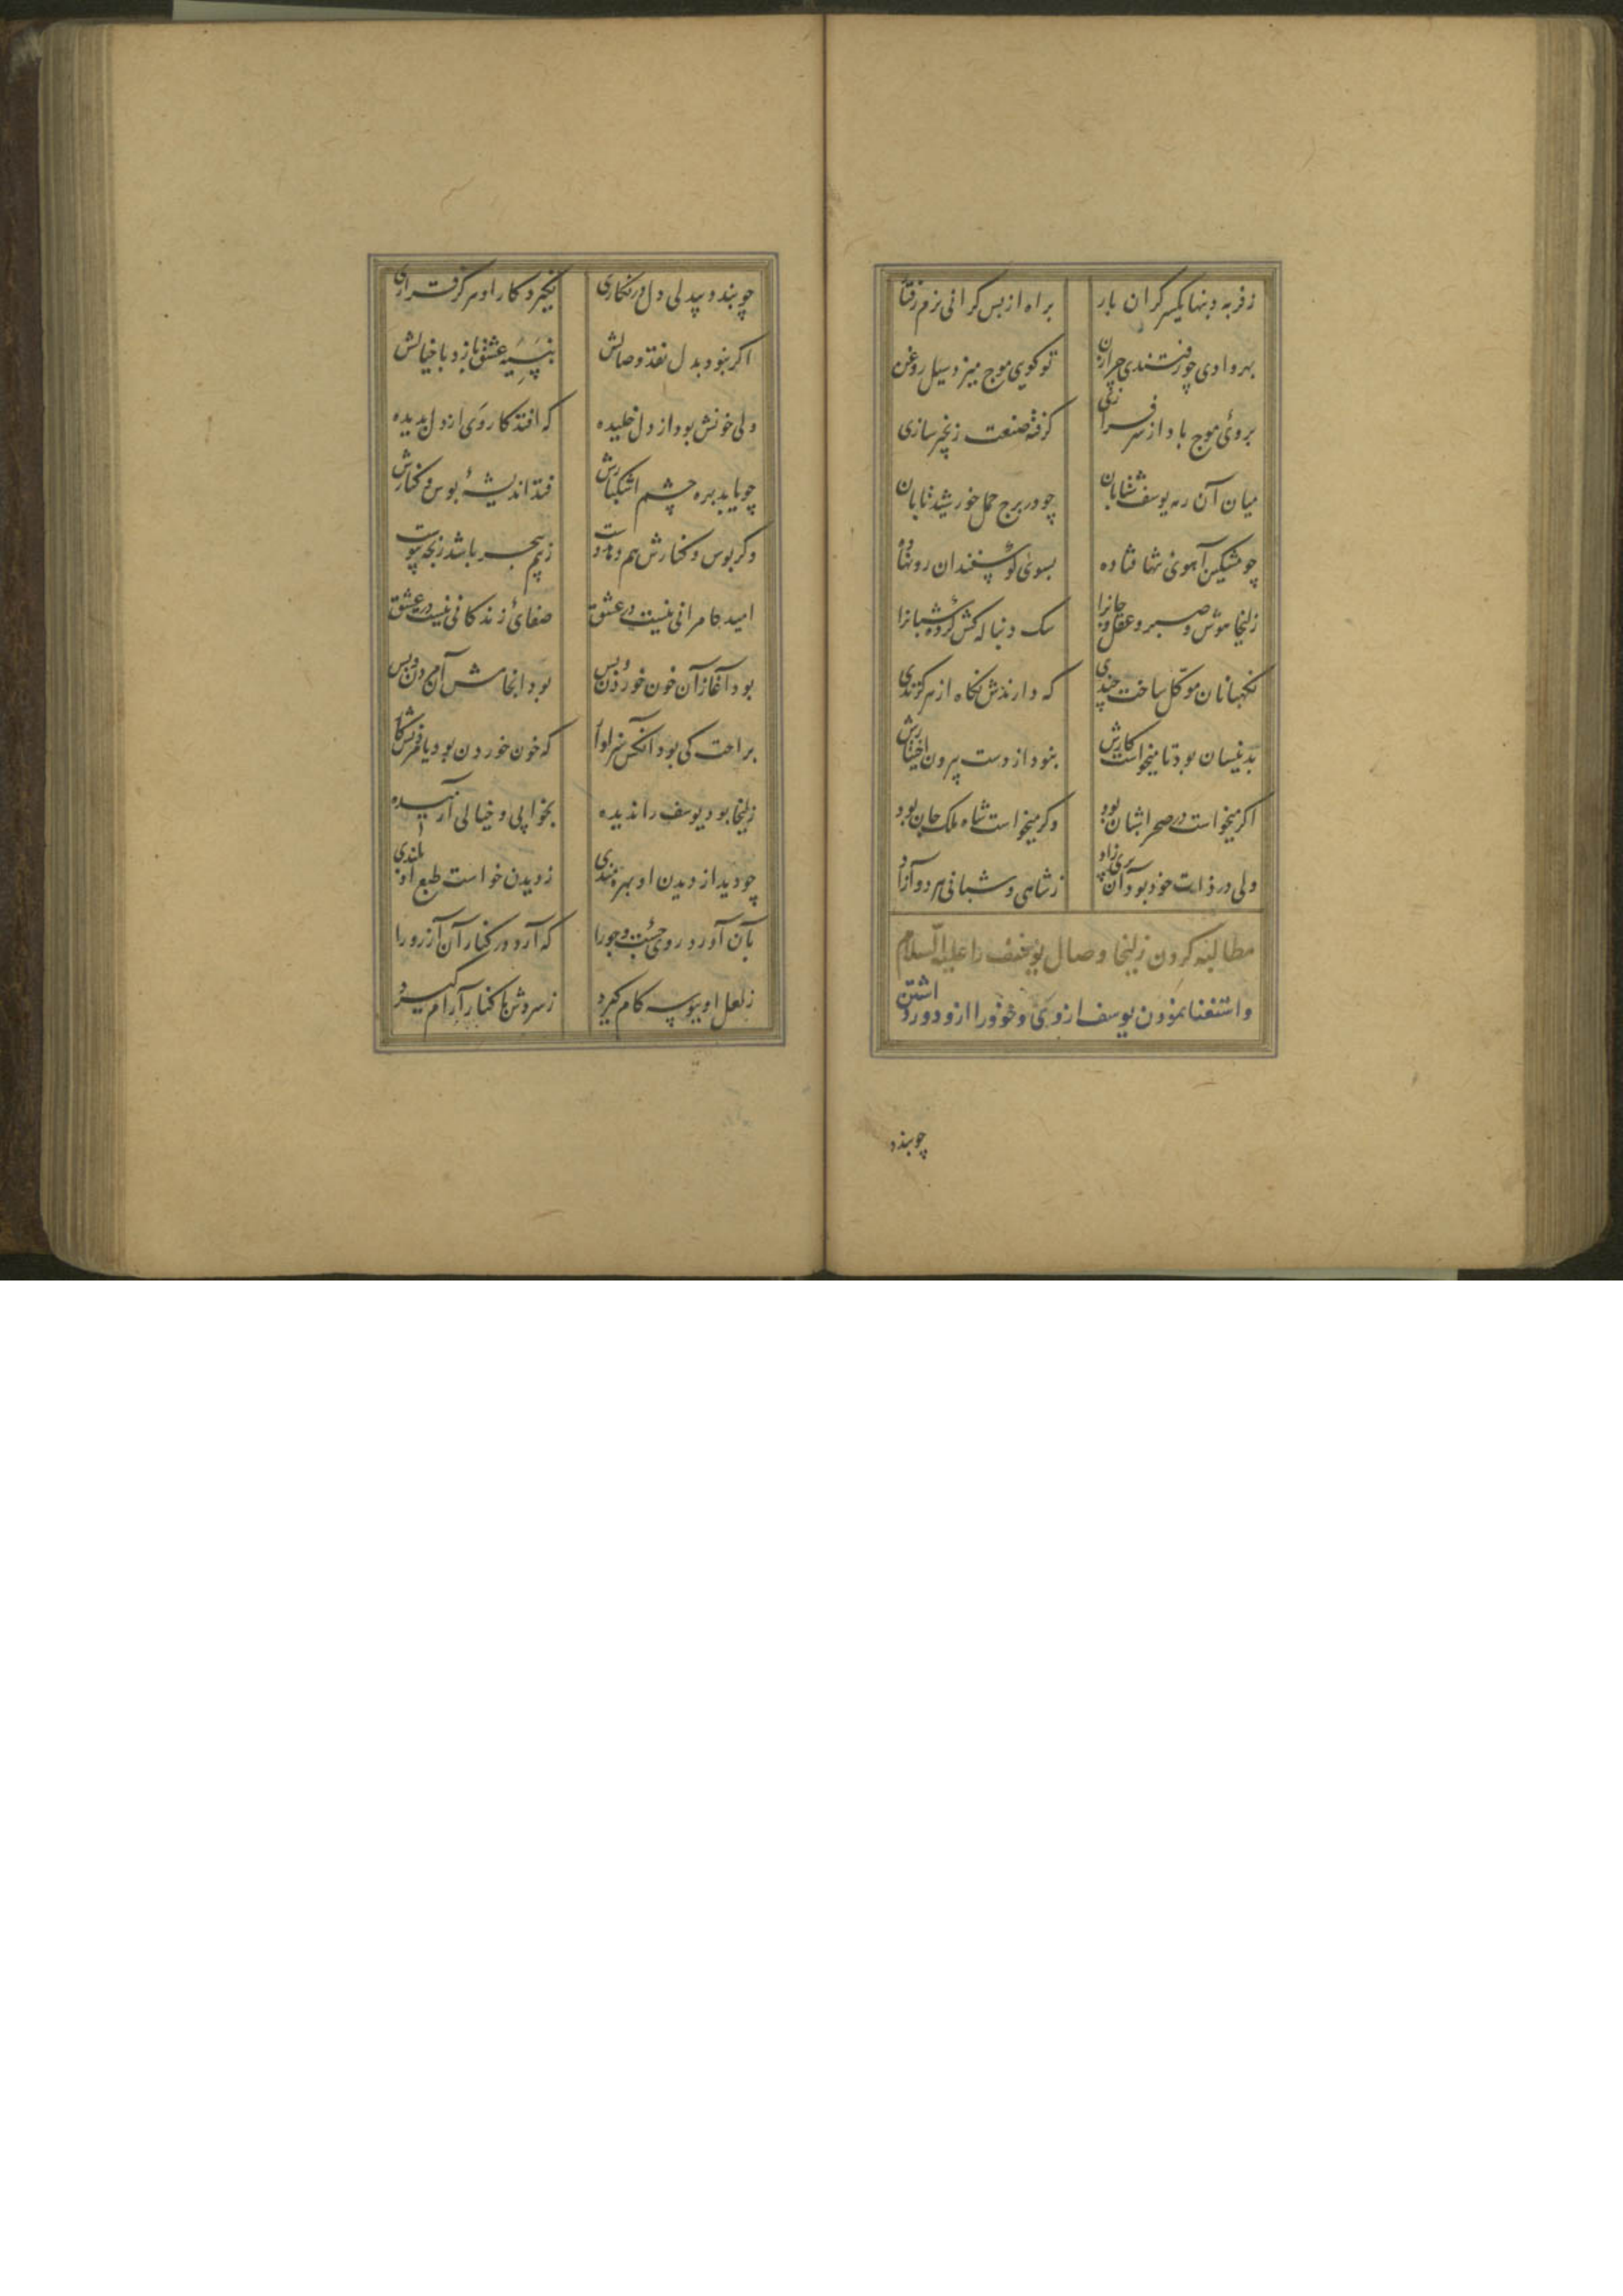 ز فربه دنبها یکسر کران بار براه از بس کرانی نرم رفتار
بهر وادی چو رفتندی چرازن تو کویی موج میزد سیل روغن
بروئ موج باد از سرفرازی کرفته صنعت زنجیر سازی
میان آن رمه یوسف شتابان چو در برج حمل خورشید تابان
چو مشکین آهوئ تنها فتاده بسوئ کوسفندان رو نهاده
زلیخا هوش و صبر و عقل و جانرا سک دنباله کش کرده شبانرا
نکهبانان موکّل ساخت چندی که دارندش نکاه از هر کزندی
بدینسان بود تا میخواست کارش نبود از دست بیرون اختیارش
اکر میخواست در صحرا شبان بود وکر میخواست شاه ملک جان بود
ولی در ذات خود بود آن پریزاد ز شاهی و شبانی هر دو آزاد
مطالبه کردن زلیخا وصال یوسف را علیه السّلام
واستغنا نمودن یوسف از وی و خود را ازو دور داشتن
چو بندد
چو بندد بیدلی دل در نکاری نکیرد کار او هرکز قراری
اکر نبود بدل نقد وصالش بنسیه عشق بازد با خیالش
ولی خونش بود از دل خلیده که افتد کار وی از دل بدیده
چو یابد بهره چشم اشکبارش فتد اندیشۀ بوس و کنارش
وکر بوس و کنارش هم دهد دست ز بیم هجر باشد رنجه پیوست
امید کامرانی نیست در عشق صفائ زندکانی نیست در عشق
بود آغاز آن خون خوردن و بس بود انجامش آن مردن و بس
براحت کی بود آنکس سزاوار که خون خوردن بود یا مردنش کار
زلیخا بود یوسف را ندیده بخوابی و خیالی آرمیده
چو دید از دیدن او بهره مندی ز دیدن خواست طبع او بلندی
بآن آورد روی جست وجو را که آرد در کنار آن آرزو را
ز لعل او ببوسه کام کیرد ز سروش با کنار آرام کیرد